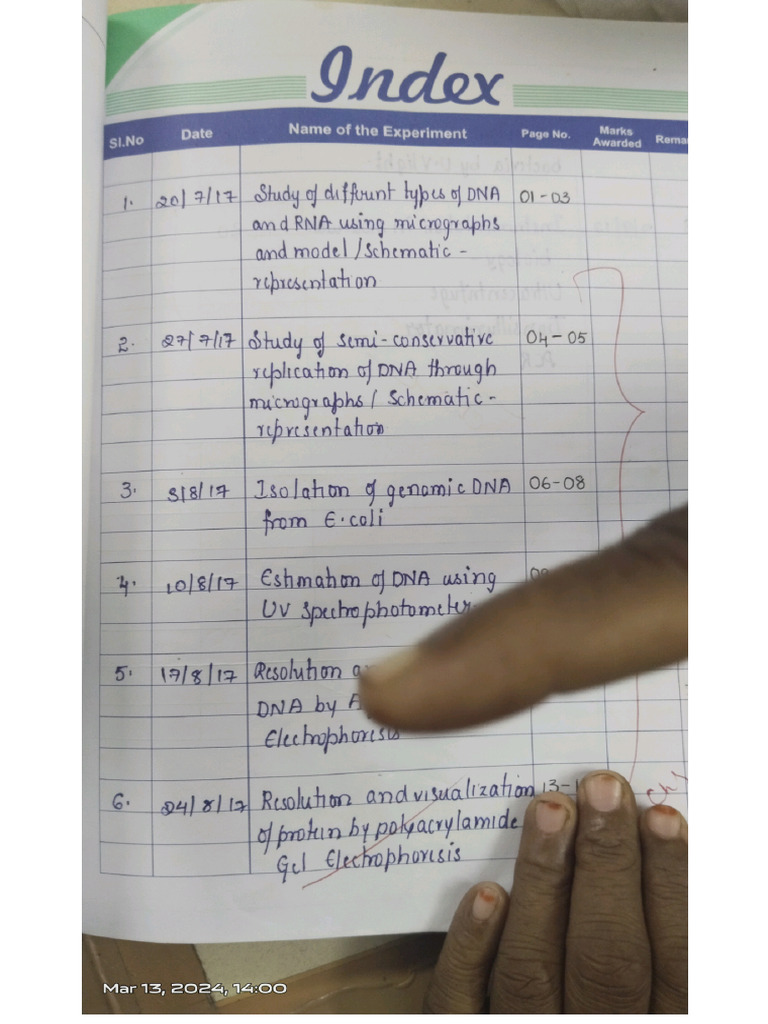 Index
Sl.No Date Name of the Experiment Page No. Marks Awarded
1. 20/7/17 Study of diffrunt types of DNA 01-03
and RNA using micrographs
and model/schematic-
representation
2. 27/7/17 Study of semi-conservative 04-05
replication of DNA through
micrographs/ Schematic-
representation
3. 3/8/17 Isolation of genomic DNA 06-08
from E.coli
4. 10/8/17 Estimation of DNA using
UV Spectrophotometer
5. 17/8/17 Resolution
DNA by
Electrophoresis
6. 24/8/17 Resolution and visualization
of protein by polyacrylamide
Gel Electrophoresis
Mar 13, 2024, 14:00